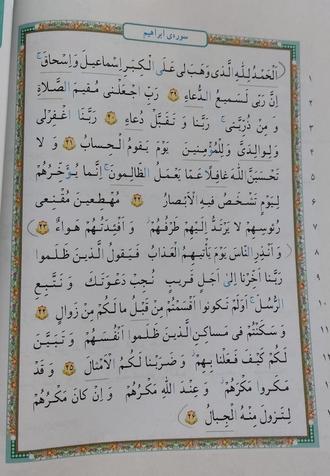 سوره‌ی ابراهیم
اَلْحَمْدُ لِلّٰهِ الَّذی وَهَبَ لی عَلَی الْکِبَرِ اِسْماعیلَ وَ اِسْحاقَ ۚ
اِنَّ رَبّی لَسَمیعُ الدُّعاءِ ﴿۳۹﴾ رَبِّ اجْعَلْنی مُقیمَ الصَّلاةِ
وَ مِنْ ذُرِّیَّتی ۚ رَبَّنا وَ تَقَبَّلْ دُعاءِ ﴿۴۰﴾ رَبَّنَا اغْفِرْلی
وَ لِوالِدَیَّ وَ لِلْمُؤْمِنینَ یَوْمَ یَقومُ الْحِسابُ ﴿۴۱﴾ وَ لا
تَحْسَبَنَّ اللهَ غافِلًا عَمّا یَعْمَلُ الظّالِمونَ ۚ اِنَّما یُؤَخِّرُهُمْ
لِیَوْمٍ تَشْخَصُ فیهِ الْاَبْصارُ ﴿۴۲﴾ مُهْطِعینَ مُقْنِعی
رُئوسِهِمْ لا یَرْتَدُّ اِلَیْهِمْ طَرْفُهُمْ ۖ وَ اَفْئِدَتُهُمْ هَواءٌ ﴿۴۳﴾
وَ اَنْذِرِ النّاسَ یَوْمَ یَأْتیهِمُ الْعَذابُ فَیَقولُ الَّذینَ ظَلَموا
رَبَّنا اَخِّرْنا اِلیٰ اَجَلٍ قَریبٍ نُجِبْ دَعْوَتَکَ وَ نَتَّبِعِ
الرُّسُلَ ۗ اَوَلَمْ تَکونوا اَقْسَمْتُمْ مِنْ قَبْلُ ما لَکُمْ مِنْ زَوالٍ ﴿۴۴﴾
وَ سَکَنْتُمْ فی مَساکِنِ الَّذینَ ظَلَموا اَنْفُسَهُمْ وَ تَبَیَّنَ
لَکُمْ کَیْفَ فَعَلْنا بِهِمْ وَ ضَرَبْنا لَکُمُ الْاَمْثالَ ﴿۴۵﴾ وَ قَدْ
مَکَروا مَکْرَهُمْ وَ عِنْدَ اللهِ مَکْرُهُمْ وَ اِنْ کانَ مَکْرُهُمْ
لِتَزولَ مِنْهُ الْجِبالُ ﴿۴۶﴾